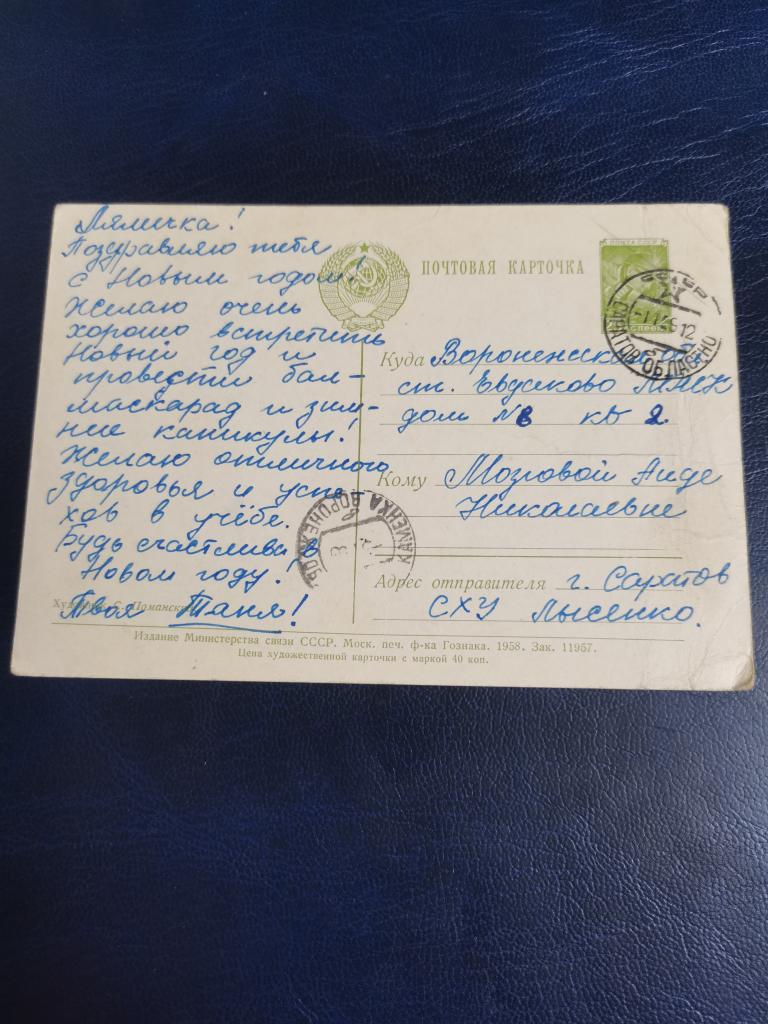 Ляличка!
Поздравляю тебя
с Новым годом!
Желаю очень
хорошо встретить
Новый год и
провести бал-
маскарад и зим-
ние каникулы!
Желаю отличного
здоровья и успе-
хов в учёбе.
Будь счастлива в
Новом году!
Твоя Таня!
ПОЧТОВАЯ КАРТОЧКА
ПОЧТА СССР
Куда Воронежская
ст. Евдаково МЖК
дом № 8 кв 2
Кому Мозговой Аиде
Николаевне
Адрес отправителя г. Саратов
СХУ Лысенко.
КАМЕНКА ВОРОНЕЖ
ОБЛАСТНО
Издание Министерства связи СССР. Моск. печ. ф-ка Гознака. 1958. Зак. 11957.
Цена художественной карточки с маркой 40 коп.